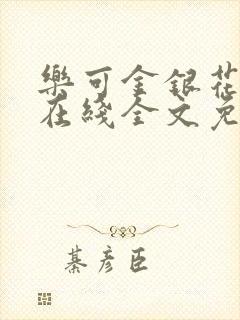 樂可金銀花
在綫全文免
綦彦臣